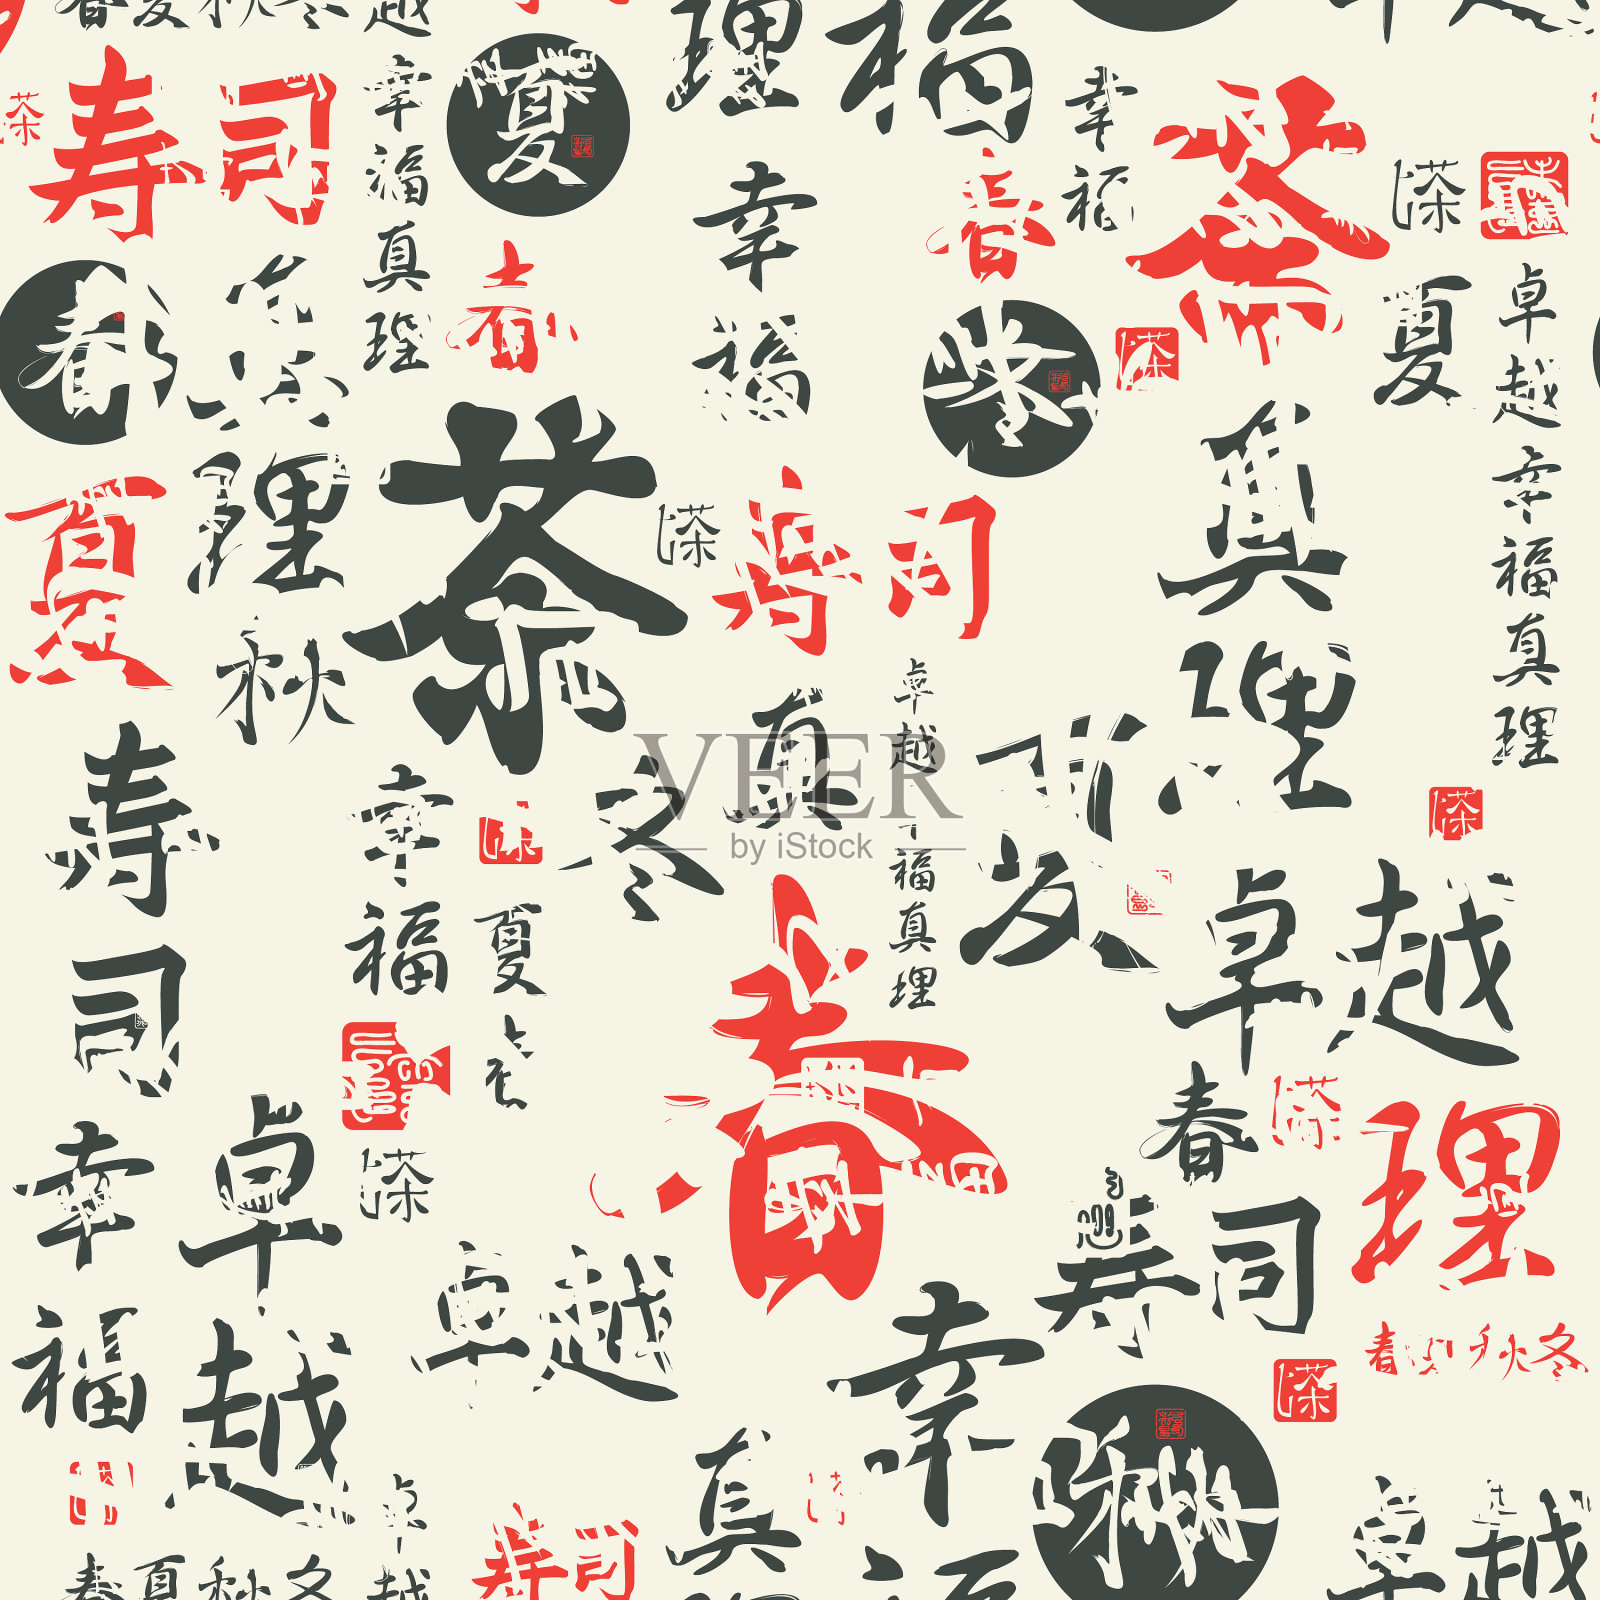 春夏秋冬
越
理
福
寿司
茶
幸福真理
夏
幸福
幸福
春
茶
茶
夏
卓越幸福真理
春
真理
冬
茶
真理
夏
秋
茶
茶
寿司
真
卓越
福真理
寿司
幸福
冬
夏
茶
卓越
春
春
茶
理
寿司
幸福
卓越
茶
卓越
幸
春 秋冬
茶
秋
真
寿司
卓
越
卓越
春夏秋冬
VEER
by iStock